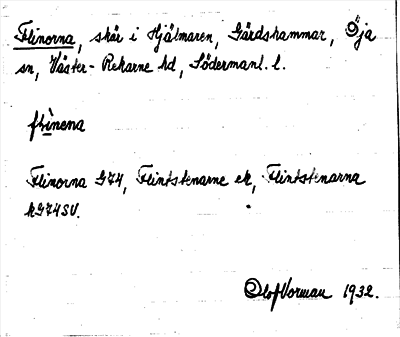 Flinorna, skär i Hjälmaren, Gårdshammar, Öja
sn, Väster-Rekarne hd, Södermanl. l.
flìnena
Flinorna G74, Flintstenarne ek, Flintstenarna
kG74SV.
Olof Vorman 1932.